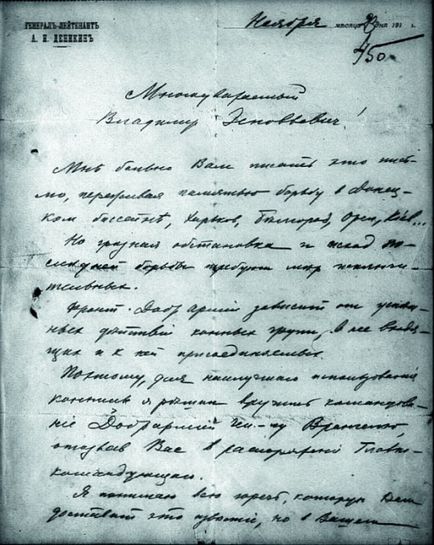 ГЕНЕРАЛЪ-ЛЕЙТЕНАНТЪ
А. И. ДЕНИКИНЪ
Ноября мѣсяца 23 дня 191 г.
450
Многоуважаемый
Владимир Зенонович!
Мнѣ больно Вам писать это пись-
мо, переживая памятью борьбу в Донец-
ком бассейнѣ, Харьков, Бѣлгород, Орел, Кіев...
Но грозная обстановка и исход по-
слѣдней борьбы требуют мѣр исключи-
тельных.
Фронт Добр. Арміи зависит от успѣш-
ных дѣйствій конных групп, в нее входя-
щих и к ней присоединяемых.
Поэтому, для наилучшаго использованія
конницы я рѣшил вручить командова-
ніе Добрармией Ген-лу Врангелю,
отозвав Вас в распоряженіе Главно-
командующаго.
Я понимаю всю горечь, которую Вам
доставит это извѣстіе, но в Вашем